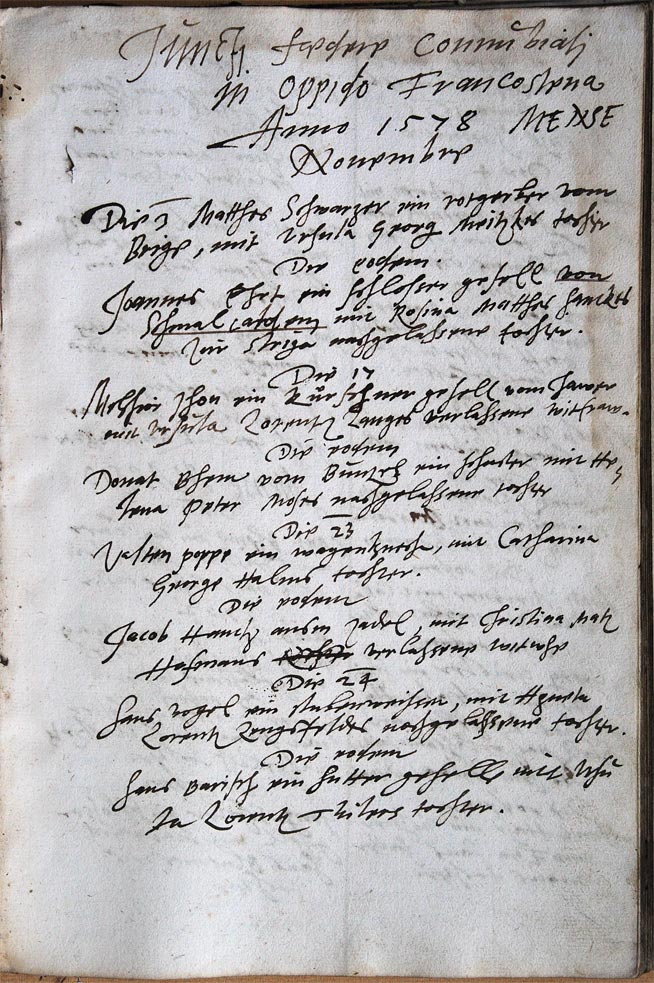 Juncti foedere Connubiali
in oppido Francostena
Anno 1578 MENSE
Novembre
Die 3 Matthes Schwarzer ein rotgerber vom
Brige, mit Ursula Georg tochter
Die eodem.
Joannes ein schlosser gesell von
mit Rosina Matthes
zur Striga nachgelassene tochter.
Die 17
Melchior ein Kürschner gesell vom Jawer
mit Ursula Lorentz Langes verlassene witfraw.
Die eodem
Donat vom Buntzel ein mit He-
lena Peter Moses nachgelassene tochter
Die 23
Valten poppe ein wagenknecht, mit Catharina
George Halms tochter.
Die eodem
Jacob ausm Zadel, mit Christina Matz
Hofmans verlassene witwhe
Die 24
Hans Vogel ein mit Agneta
Lorentz nachgelassene tochter.
Die eodem
Hans Barisch ein hutter geselle, mit Ursu
la Lorentz tochter.